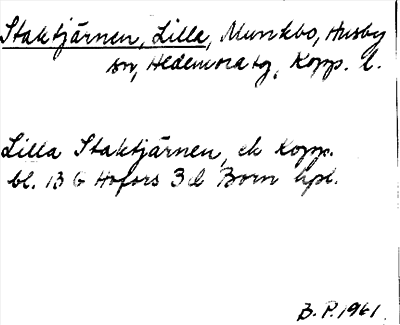 Staktjärnen, Lilla, Munkbo, Husby
sn, Hedemora tg, Kopp. l.
Lilla Staktjärnen, ek Kopp.
bl. 13 G Hofors 3 d Born hpl.
B. P. 1961